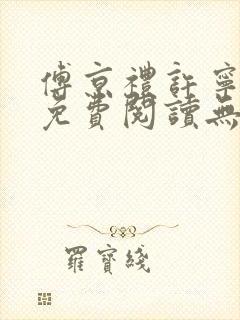 傅京禮許寧
免費閱讀無
羅寶綫